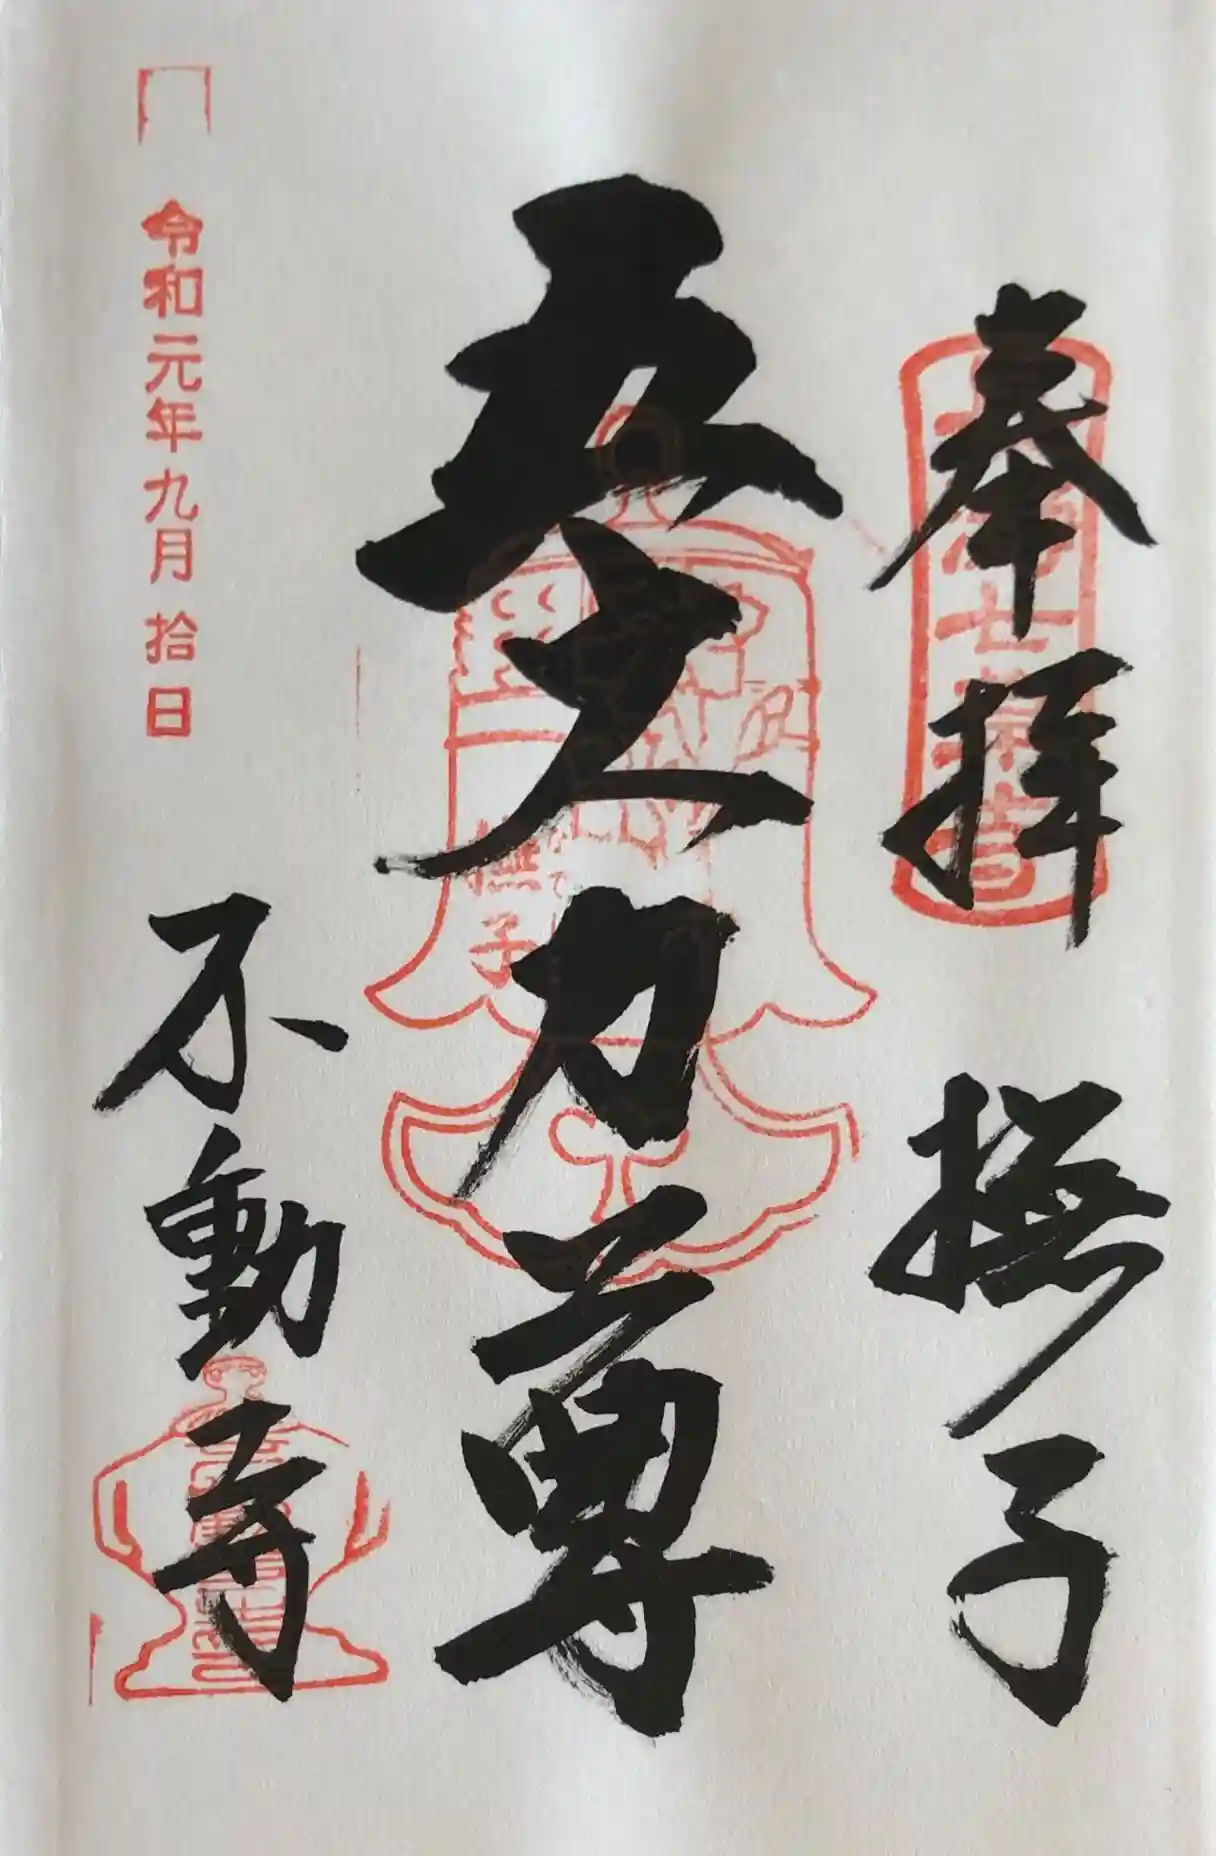 奉拝 撫子
五大力尊
撫子
不動寺
令和元年九月拾日